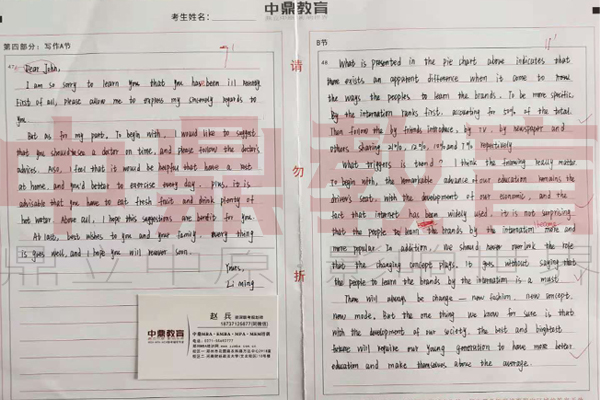 中鼎教育
考生姓名:
第四部分: 写作A节
47
Dear John,
I am so sorry to learn you that you has been ill
First of all, please allow me to express my sincerely regards to
you.
But as for my part. To begin with, I would like to suggest
that you should see a doctor on time, and please follow the doctor's
advices. Also, I feel that it would be helpful that have a rest
at home, and you'd better to exercise every day. Plus, it is
advisable that you have to eat fresh fruit and drink plenty of
hot water. Above all, I hope this suggestions are benefit for you.
At last, best wishes to you and your family, every thing
is goes well, and I hope you will recover soon.
Yours,
Li ming
请
勿
折
中鼎教育
赵兵
中鼎教育
B节
48
What is presented in the pie chart above indicates that
there exists an apparent difference when it came to
the ways the peoples to learn the brands. To be more specific,
By the internation ranks first, accounting for 50% of the total.
Then follows the by friends introduce, by TV, by newspaper and
others, sharing 21%, 12%, 10% and 7%
What triggers is trend? I think the following really matter.
To begin with, the remarkable advance of our education remains the
driver's seat. With the development of our economic, and the
fact that internet has been widely used, it is not surprising
that the people to learn the brands by the internation more and
more popular. In addition, We should never overlook the role
that the changing concept plays. It goes without saying that
the people to learn the brands by the internation is a must
There will always be change — new fashion, new concept,
new mode, But the one thing we know for sure is that
with the development of our society. The best and brightest
future will require our young generation to have more better
education and make themselves above the average.